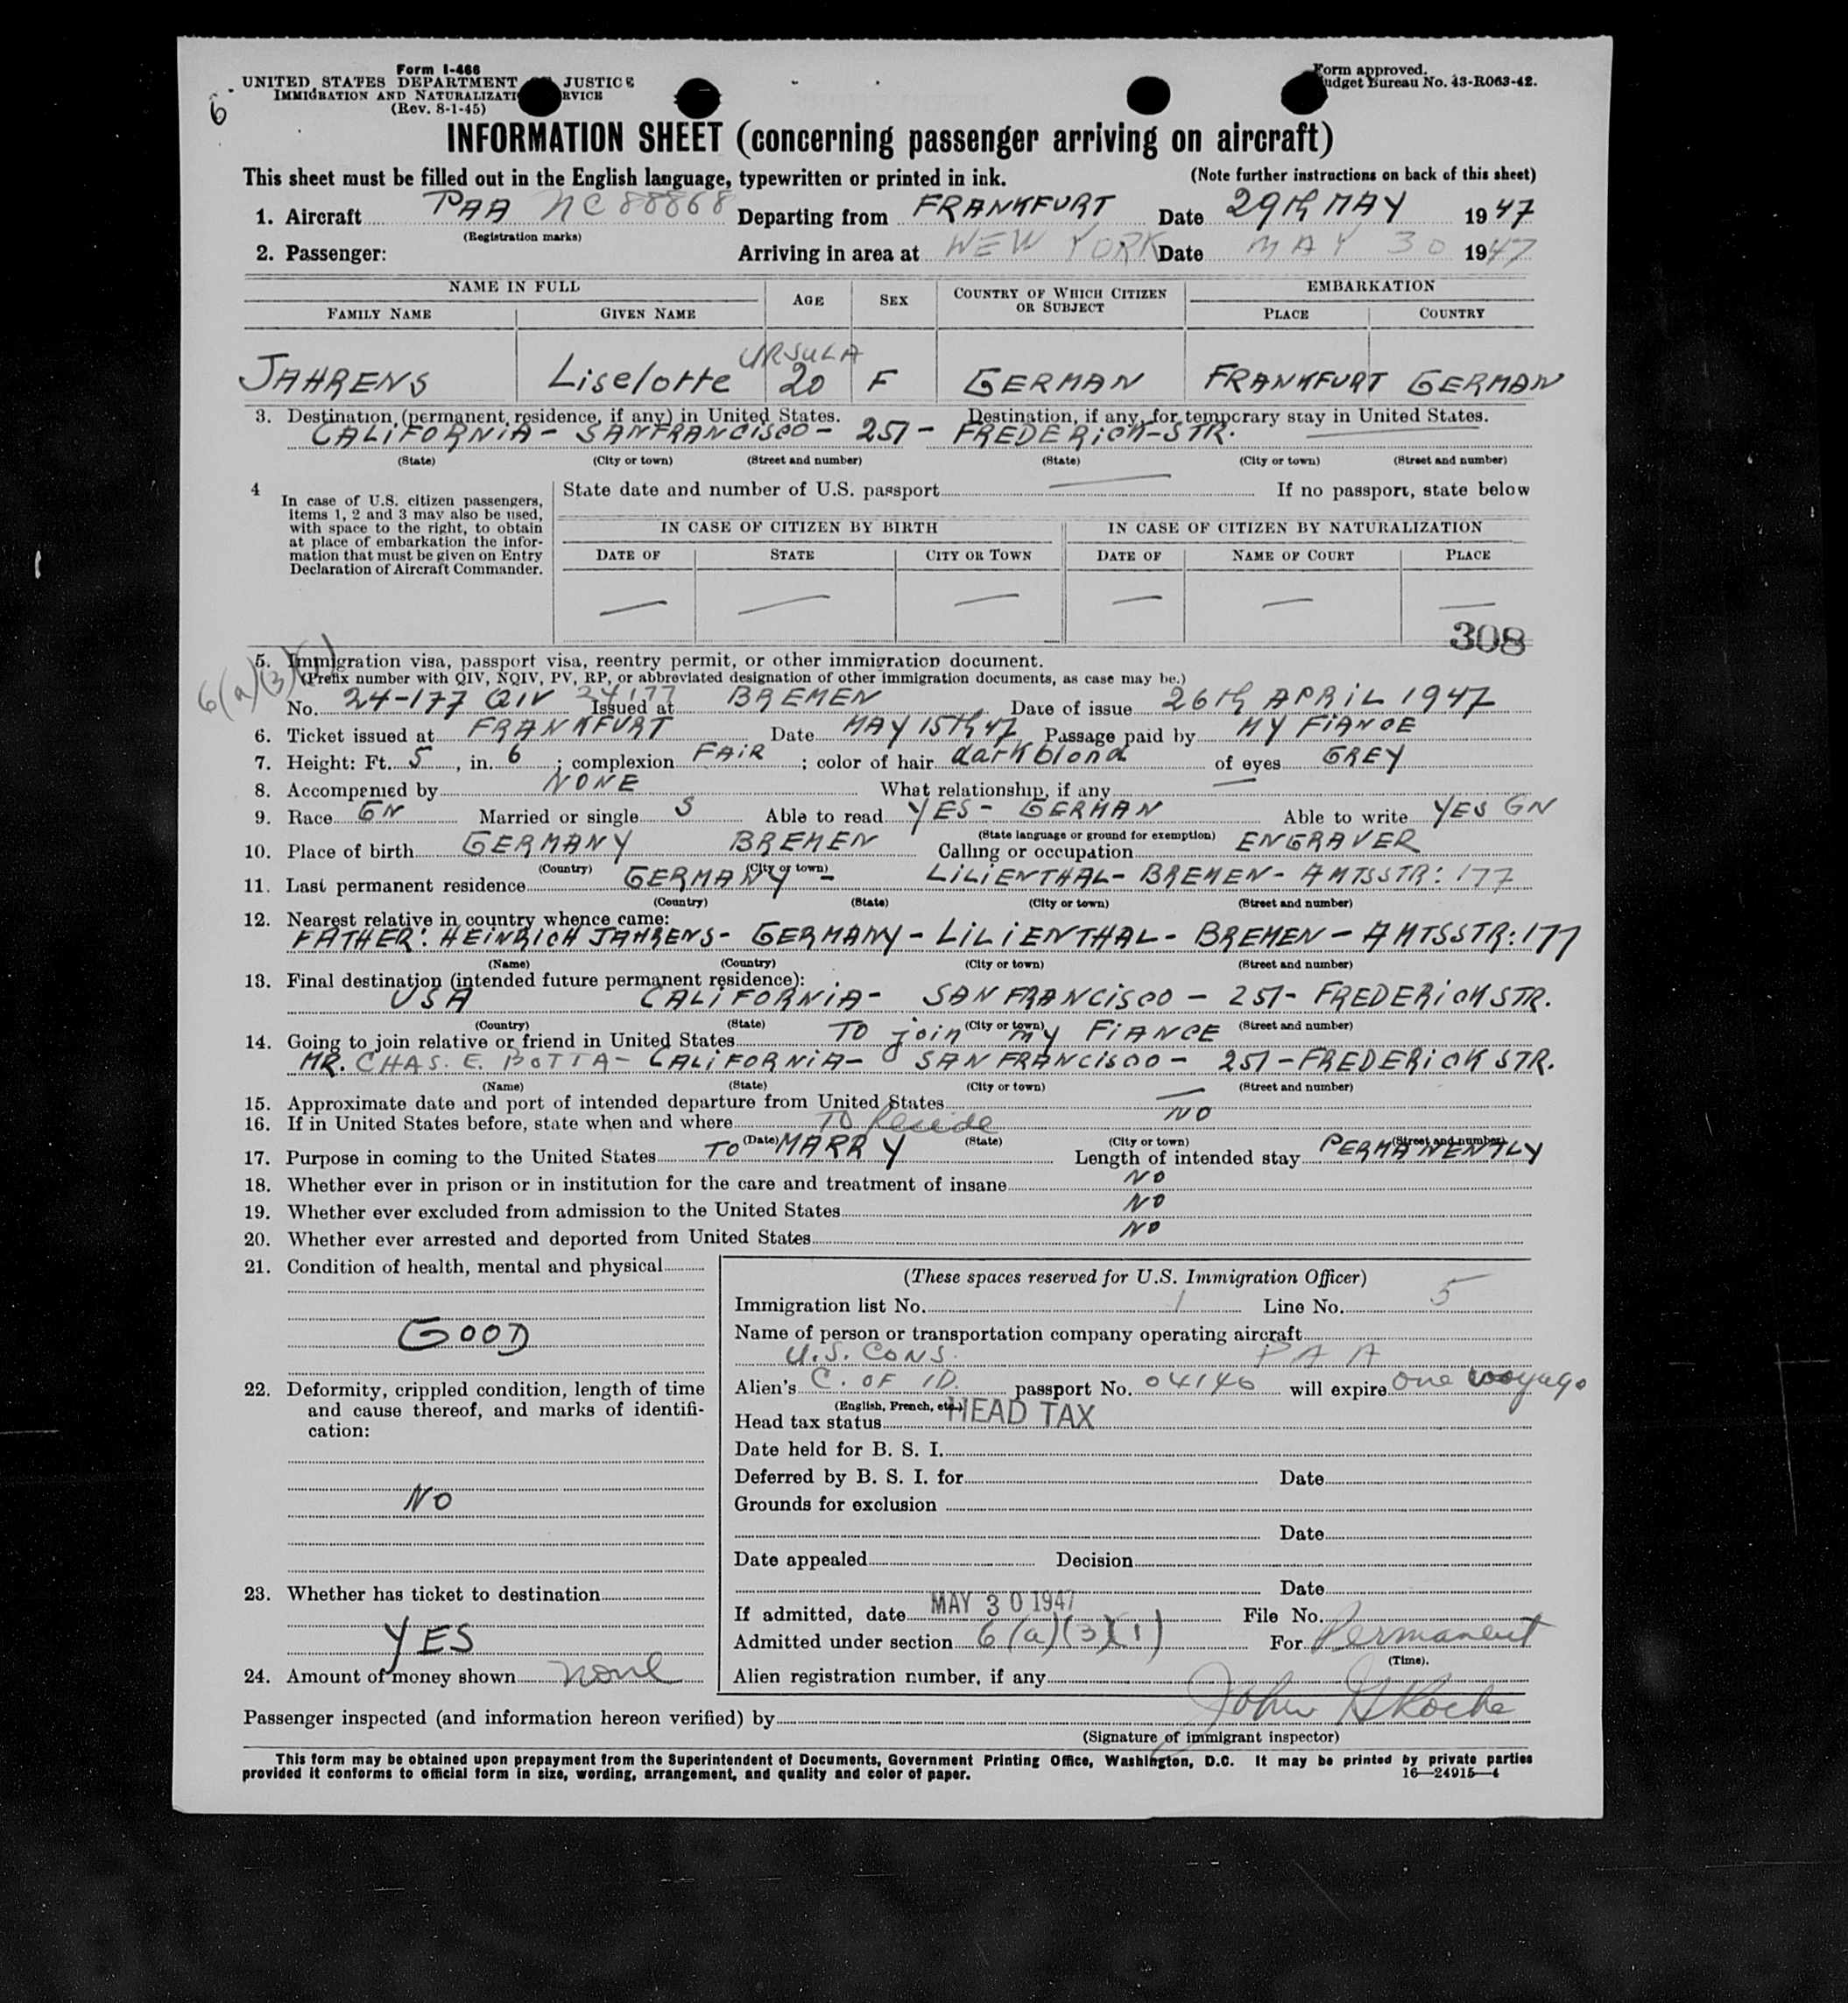 Form I-466
UNITED STATES DEPARTMENT JUSTICE
IMMIGRATION AND NATURALIZATI RVICE
(Rev. 8-1-45)
Form approved.
udget Bureau No. 43-R063-42.
6
INFORMATION SHEET (concerning passenger arriving on aircraft)
This sheet must be filled out in the English language, typewritten or printed in ink. (Note further instructions on back of this sheet)
1. Aircraft PAA NC 88868 Departing from FRANKFURT Date 29th MAY 1947
(Registration marks)
2. Passenger: Arriving in area at NEW YORK Date MAY 30 1947
NAME IN FULL AGE SEX COUNTRY OF WHICH CITIZEN OR SUBJECT EMBARKATION
FAMILY NAME GIVEN NAME PLACE COUNTRY
URSULA
JAHRENS Liselotte 20 F GERMAN FRANKFURT GERMAN
3. Destination, (permanent residence, if any) in United States. Destination, if any, for temporary stay in United States.
CALIFORNIA - SANFRANCISCO - 251 - FREDERICK-STR.
(State) (City or town) (Street and number) (State) (City or town) (Street and number)
4 In case of U.S. citizen passengers, items 1, 2 and 3 may also be used, with space to the right, to obtain at place of embarkation the infor-
mation that must be given on Entry Declaration of Aircraft Commander.
State date and number of U.S. passport If no passport, state below
IN CASE OF CITIZEN BY BIRTH IN CASE OF CITIZEN BY NATURALIZATION
DATE OF STATE CITY OR TOWN DATE OF NAME OF COURT PLACE
308
5. Immigration visa, passport visa, reentry permit, or other immigration document.
6(a)(3)
(Prefix number with QIV, NQIV, PV, RP, or abbreviated designation of other immigration documents, as case may be.)
No. 24-177 QIV 24177 Issued at BREMEN Date of issue 26th APRIL 1947
6. Ticket issued at FRANKFURT Date MAY 15th 47 Passage paid by MY FIANCE
7. Height: Ft. 5, in. 6; complexion FAIR; color of hair darkblond of eyes GREY
8. Accompenied by NONE What relationship, if any
9. Race GN Married or single S Able to read YES - GERMAN Able to write YES GN
(State language or ground for exemption)
10. Place of birth GERMANY BREMEN Calling or occupation ENGRAVER
(Country) (City or town)
11. Last permanent residence GERMANY - LILIENTHAL - BREMEN - AMTSSTR: 177
(Country) (State) (City or town) (Street and number)
12. Nearest relative in country whence came:
FATHER: HEINRICH JAHRENS - GERMANY - LILIENTHAL - BREMEN - AMTSSTR: 177
(Name) (Country) (City or town) (Street and number)
13. Final destination (intended future permanent residence):
USA CALIFORNIA - SAN FRANCISCO - 251 - FREDERICK STR.
(Country) (State) (City or town) (Street and number)
14. Going to join relative or friend in United States TO join my FIANCE
MR. CHAS. E. BOTTA - CALIFORNIA - SAN FRANCISCO - 251 - FREDERICK STR.
(Name) (State) (City or town) (Street and number)
15. Approximate date and port of intended departure from United States
16. If in United States before, state when and where NO
TO Reside
(Date) (State) (City or town) (Street and number)
17. Purpose in coming to the United States TO MARRY Length of intended stay PERMANENTLY
18. Whether ever in prison or in institution for the care and treatment of insane NO
19. Whether ever excluded from admission to the United States NO
20. Whether ever arrested and deported from United States NO
21. Condition of health, mental and physical
GOOD
22. Deformity, crippled condition, length of time
and cause thereof, and marks of identifi-
cation:
NO
23. Whether has ticket to destination
YES
24. Amount of money shown none
(These spaces reserved for U.S. Immigration Officer)
Immigration list No. 1 Line No. 5
Name of person or transportation company operating aircraft
U.S. CONS. PAA
Alien's C. OF ID. passport No. 04140 will expire One voyage
(English, French, etc.)
Head tax status HEAD TAX
Date held for B. S. I.
Deferred by B. S. I. for Date
Grounds for exclusion
Date
Date appealed Decision
Date
If admitted, date MAY 30 1947 File No.
Admitted under section 6(a)(3)(1) For Permanent
(Time).
Alien registration number, if any
Passenger inspected (and information hereon verified) by John Roche
(Signature of immigrant inspector)
This form may be obtained upon prepayment from the Superintendent of Documents, Government Printing Office, Washington, D.C. It may be printed by private parties
provided it conforms to official form in size, wording, arrangement, and quality and color of paper. 16—24915-4